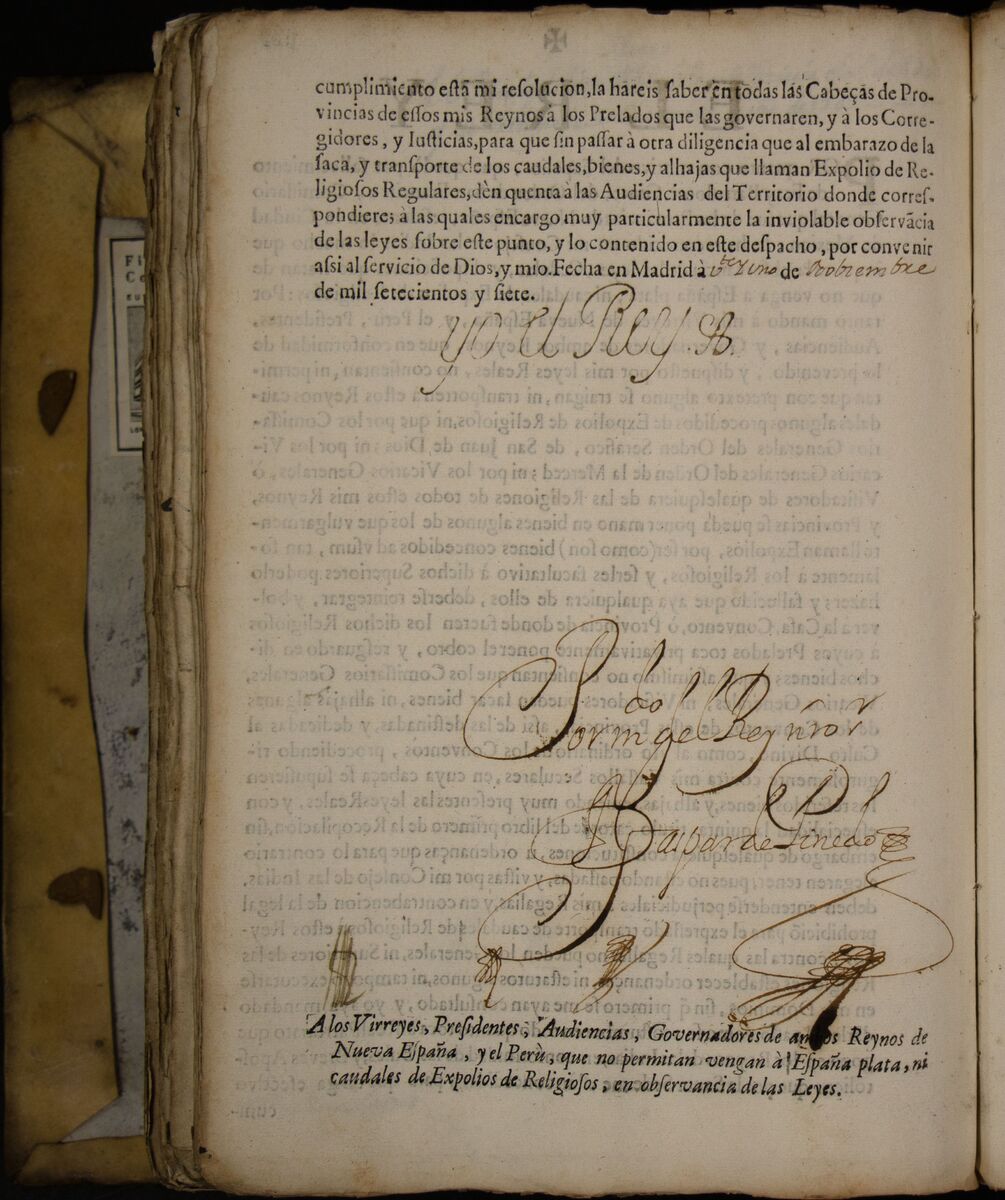 cumplimiento estâ mi resolucion, la hareis saber en todas las Cabeças de Pro-
vincias de essos mis Reynos à los Prelados que las governaren, y à los Corre-
gidores, y Iusticias, para que sin passar à otra diligencia que al embarazo de la
saca, y transporte de los caudales, bienes, y alhajas que llaman Expolio de Re-
ligiosos Regulares, dèn quenta à las Audiencias del Territorio donde corres-
pondiere; à las quales encargo muy particularmente la inviolable observãcia
de las leyes sobre este punto, y lo contenido en este despacho, por convenir
assi al servicio de Dios, y mio. Fecha en Madrid à vte y uno de Nobiembre
de mil setecientos y siete.
yo el Rey.
Por mdo del Rey nro sr
Gaspar de Pinedo
A los Virreyes, Presidentes, Audiencias, Governadores de ambos Reynos de
Nueva España, y el Perù, que no permitan vengan à España plata, ni
caudales de Expolios de Religiosos, en observancia de las Leyes.